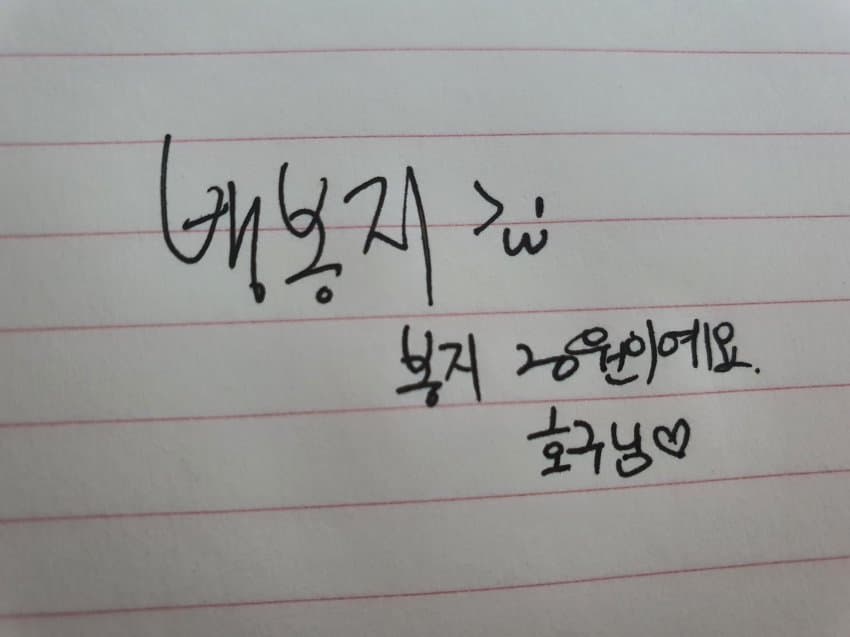 뱅봉지 >ω·
봉지 20원이에요.
호구님♡